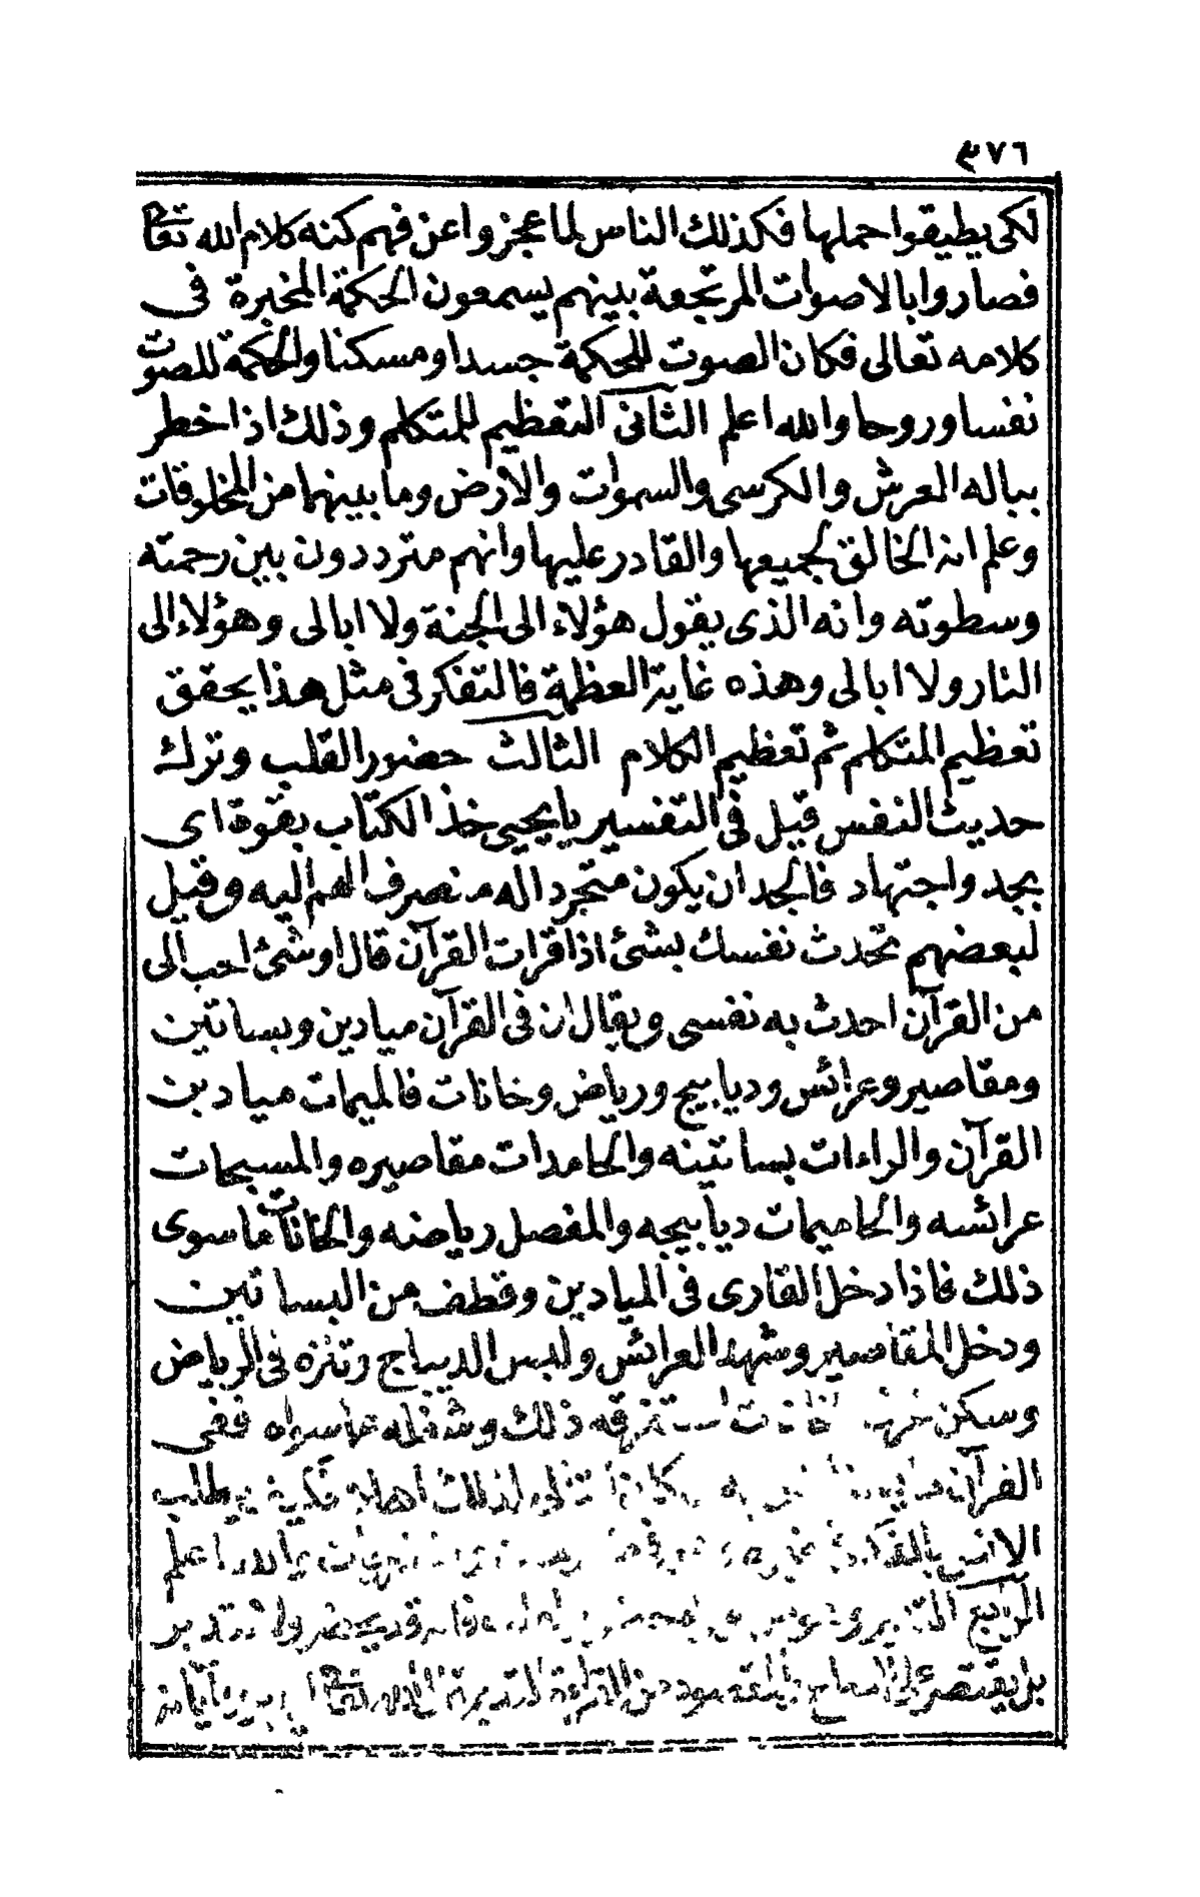 ٣٧٦
لكى يطيقوا حملها فكذلك الناس لما عجزوا عن فهم كنه كلام الله تعا
فصاروا بالاصوات المرتجعة بينهم يسمعون الحكمة المخبرة فى
كلامه تعالى فكان الصوت للحكمة جسدا ومسكنا والحكمة للصوت
نفسا وروحا والله اعلم الثانى التعظيم للمتكلم وذلك اذا خطر
بباله العرش والكرسى والسموات والارض وما بينهما من المخلوقات
وعلم انه الخالق لجميعها والقادر عليها وانهم مترددون بين رحمته
وسطوته وانه الذى يقول هؤلاء الى الجنة ولا ابالى وهؤلاء الى
النار ولا ابالى وهذه غاية العظمة فالتفكر فى مثل هذا يحقق
تعظيم المتكلم ثم تعظيم الكلام الثالث حضور القلب وترك
حديث النفس قيل فى التفسير يا يحيى خذ الكتاب بقوة اى
بجد واجتهاد فالجد ان يكون متجرد اله منصرف الهم اليه وقيل
لبعضهم تحدث نفسك بشئ اذا قرات القرآن قال او شئ احب الى
من القرآن احدث به نفسى ويقال ان فى القرآن ميادين وبساتين
ومقاصير وعرائش وديابيج ورياض وخانات فالميمات ميادين
القرآن والراءات بساتينه والحامدات مقاصيره والمسبحات
عرائشه والحاميمات ديابيجه والمفصل رياضه والخانات ما سوى
ذلك فاذا دخل القارى فى الميادين وقطف من البساتين
ودخل المقاصير وشهد العرائش ولبس الديباج وتنزه فى الرياض
وسكن ذلك وشغله عما سواه ففى
القرآن لذلك اهلا فكيف يطلب
الانس اعلم
الرابع التدبر قد يحضر ولا يتدبر
بل يقتصر على من القراءة التدبر